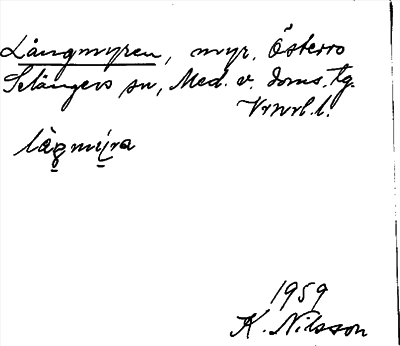 Långmyren, myr, Österro
Selångers sn, Med. v. doms. tg.
Vrnrl. l.
làgmýra
1959
K. Nilsson